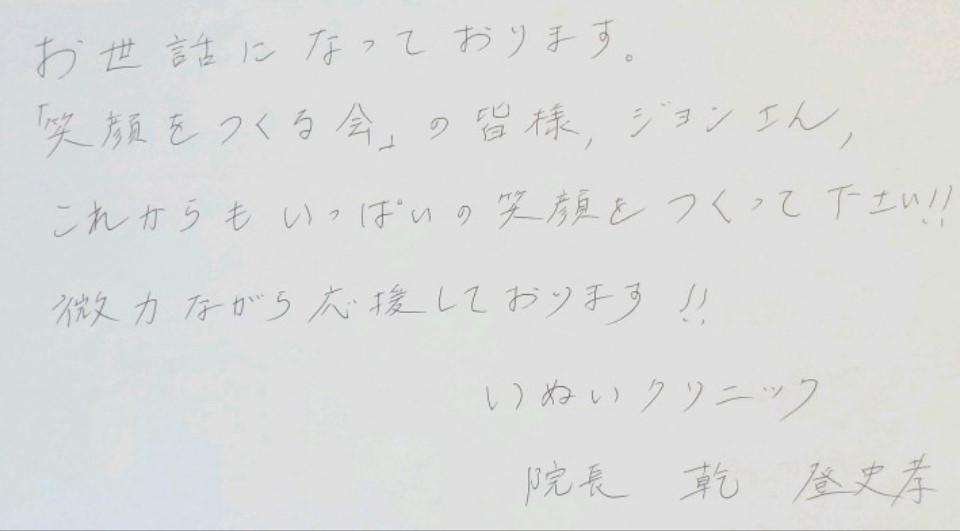 お世話になっております。
「笑顔をつくる会」の皆様,ジョンさん,
これからもいっぱいの笑顔をつくって下さい!!
微力ながら応援しております!!
いぬいクリニック
院長 乾 登史孝